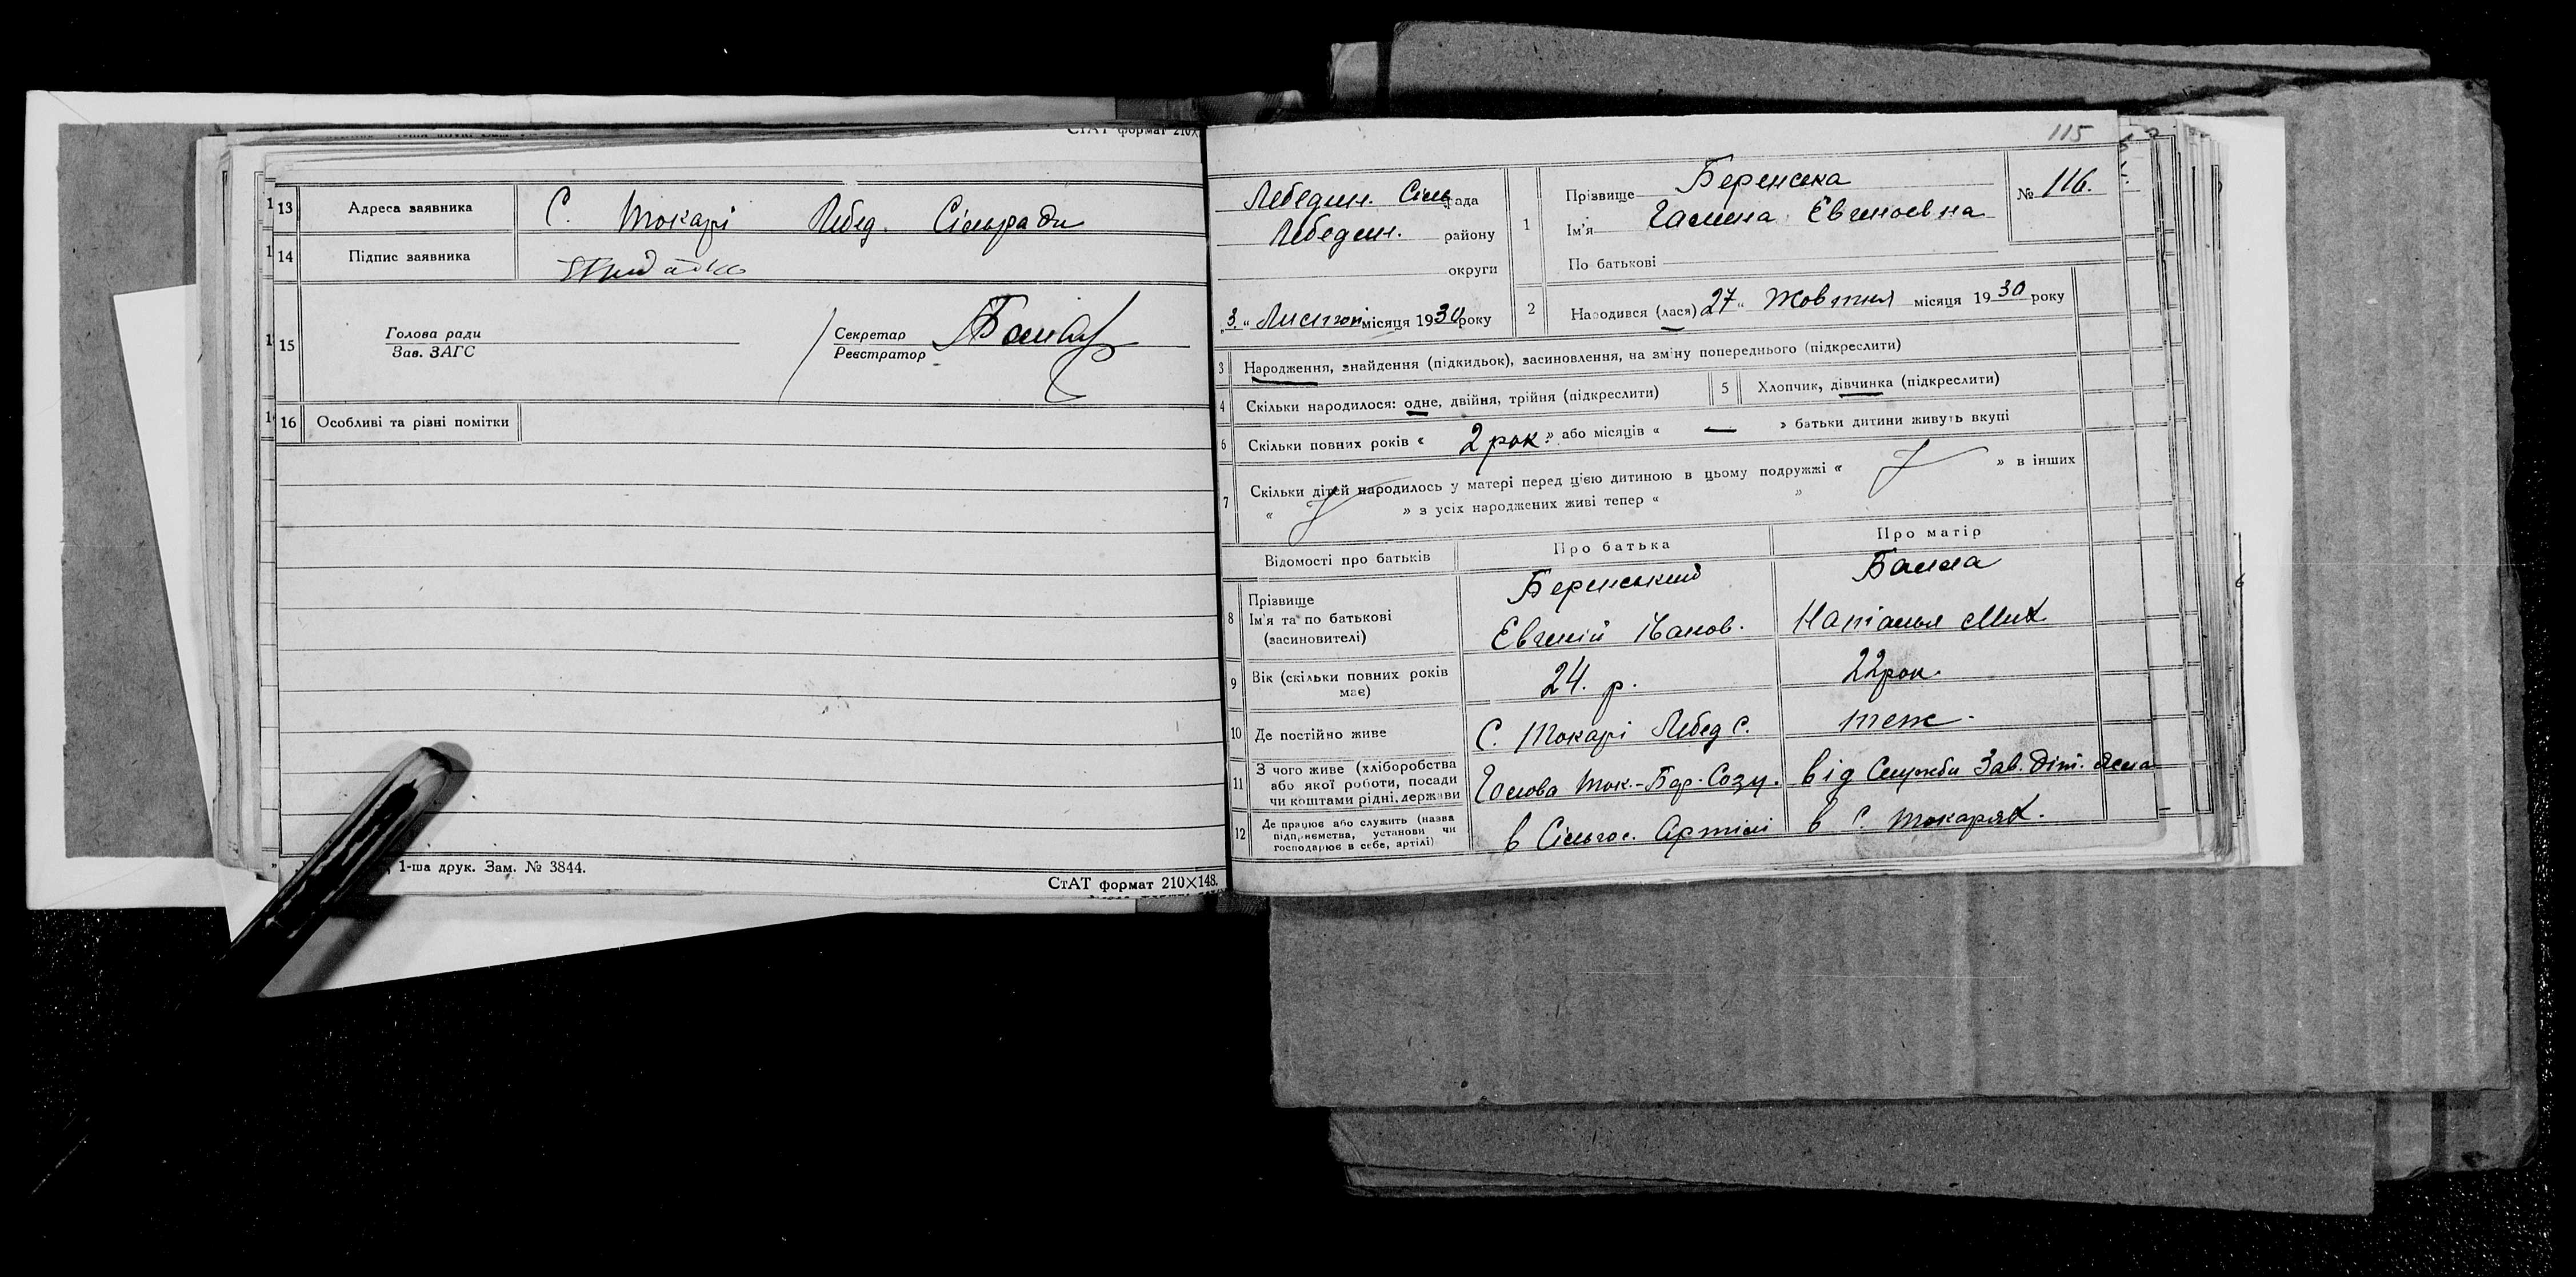 СтАТ формат 210×
13 Адреса заявника С. Токарі Лебед. Сільради
14 Підпис заявника
15 Голова ради
Зав. ЗАГС
Секретар
Реєстратор
16 Особливі та різні помітки
1-ша друк. Зам. № 3844.
СтАТ формат 210×148.
115
Лебедин. Сільрада
Лебедин. району
округи
„3.“ Листоп місяця 1930 року
1 Прізвище Беренська
Ім'я Галина Євгеноевна
По батькові
№ 116.
2 Народився (лася) 27 „ Жовтня місяця 1930 року
3 Народження, знайдення (підкидьок), засиновлення, на зміну попереднього (підкреслити)
4 Скільки народилося: одне, двійня, трійня (підкреслити)
5 Хлопчик, дівчинка (підкреслити)
6 Скільки повних років « 2 рок. » або місяців « — » батьки дитини живуть вкупі
7 Скільки дітей народилось у матері перед цією дитиною в цьому подружжі « » в інших
« » з усіх народжених живі тепер « »
Відомості про батьків
Про батька
Про матір
8 Прізвище
Ім'я та по батькові
(засиновителі)
Беренський
Евгеній Іванов.
Наталья Мих
9 Вік (скільки повних років
має)
24. р.
22 рок.
10 Де постійно живе
С. Токарі Лебед С.
теж.
11 З чого живе (хліборобства
або якої роботи, посади
чи коштами рідні, держави
Голова Ток.-Бер. Созу.
від Служби Зав. Діт. Ясла
12 Де працює або служить (назва
підприємства, установи чи
господарює в себе, артілі)
в Сільгос. Артілі
в С. Токарях.